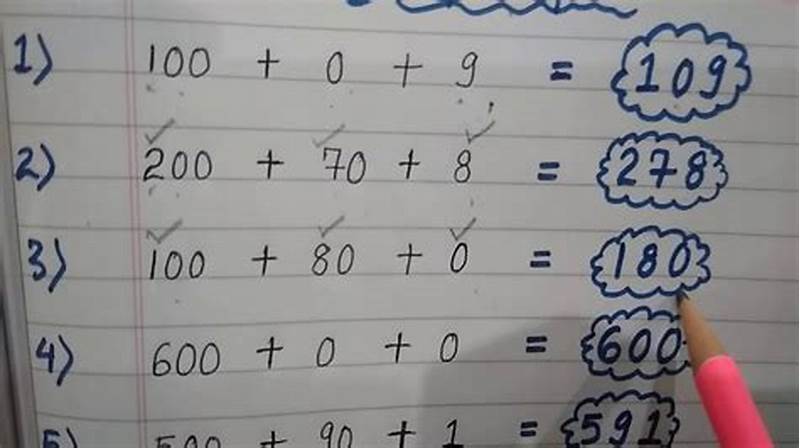 1) 100 + 0 + 9 = 109
2) 200 + 70 + 8 = 278
3) 100 + 80 + 0 = 180
4) 600 + 0 + 0 = 600
5) 500 + 90 + 1 = 591